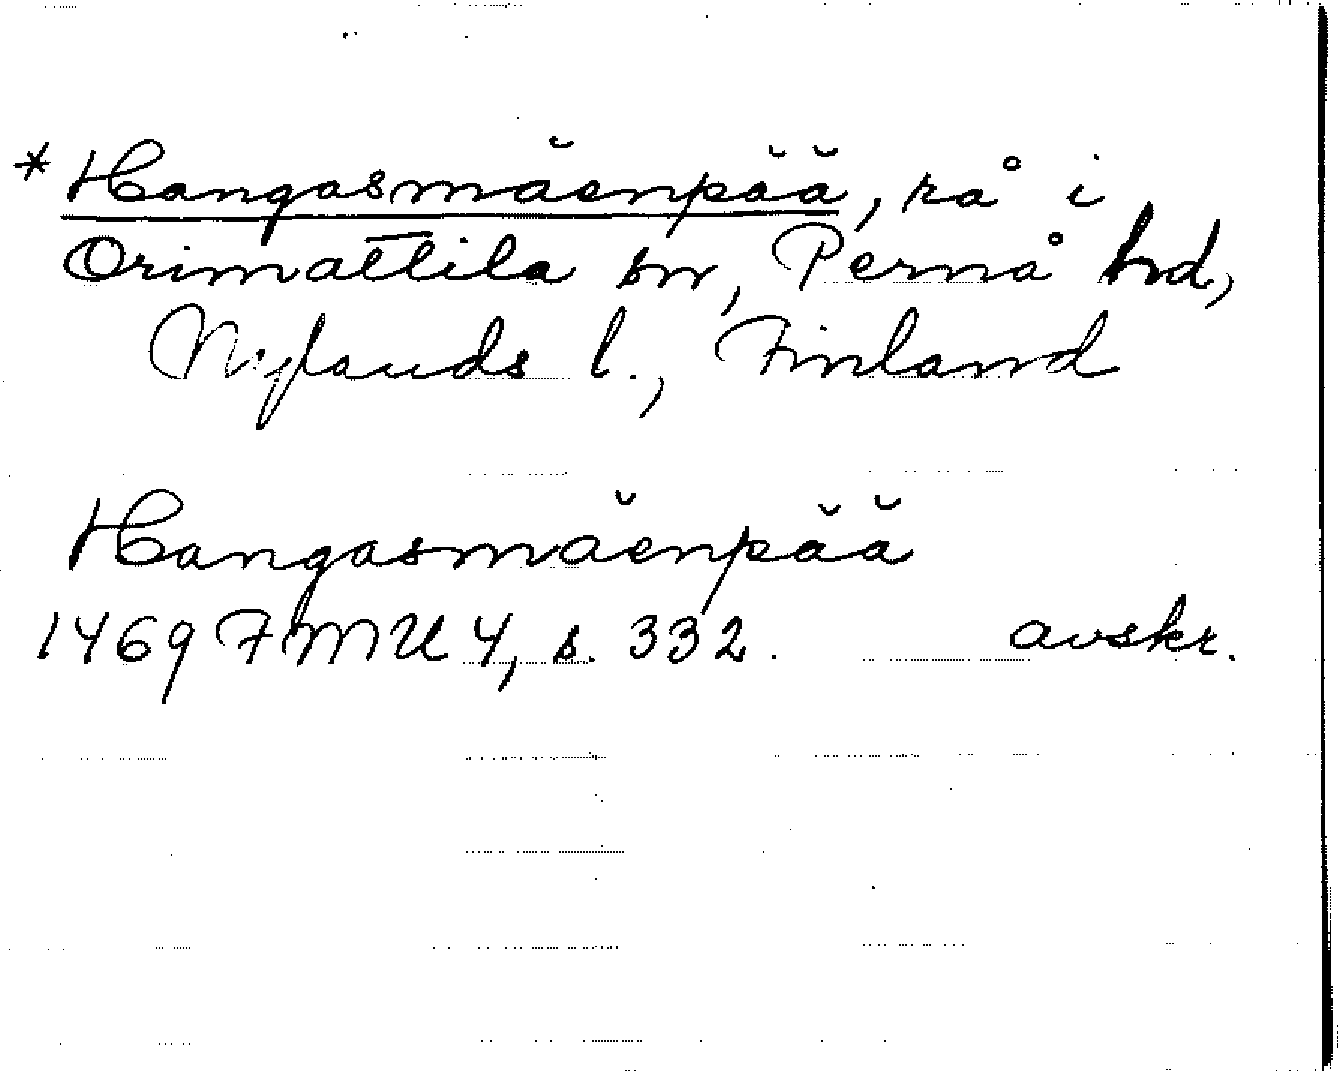 * Hangasmäenpää, rå i
Orimattila sn, Pernå hd,
Nylands l., Finland
Hangasmäenpää
1469 FMU 4, s. 332. avskr.